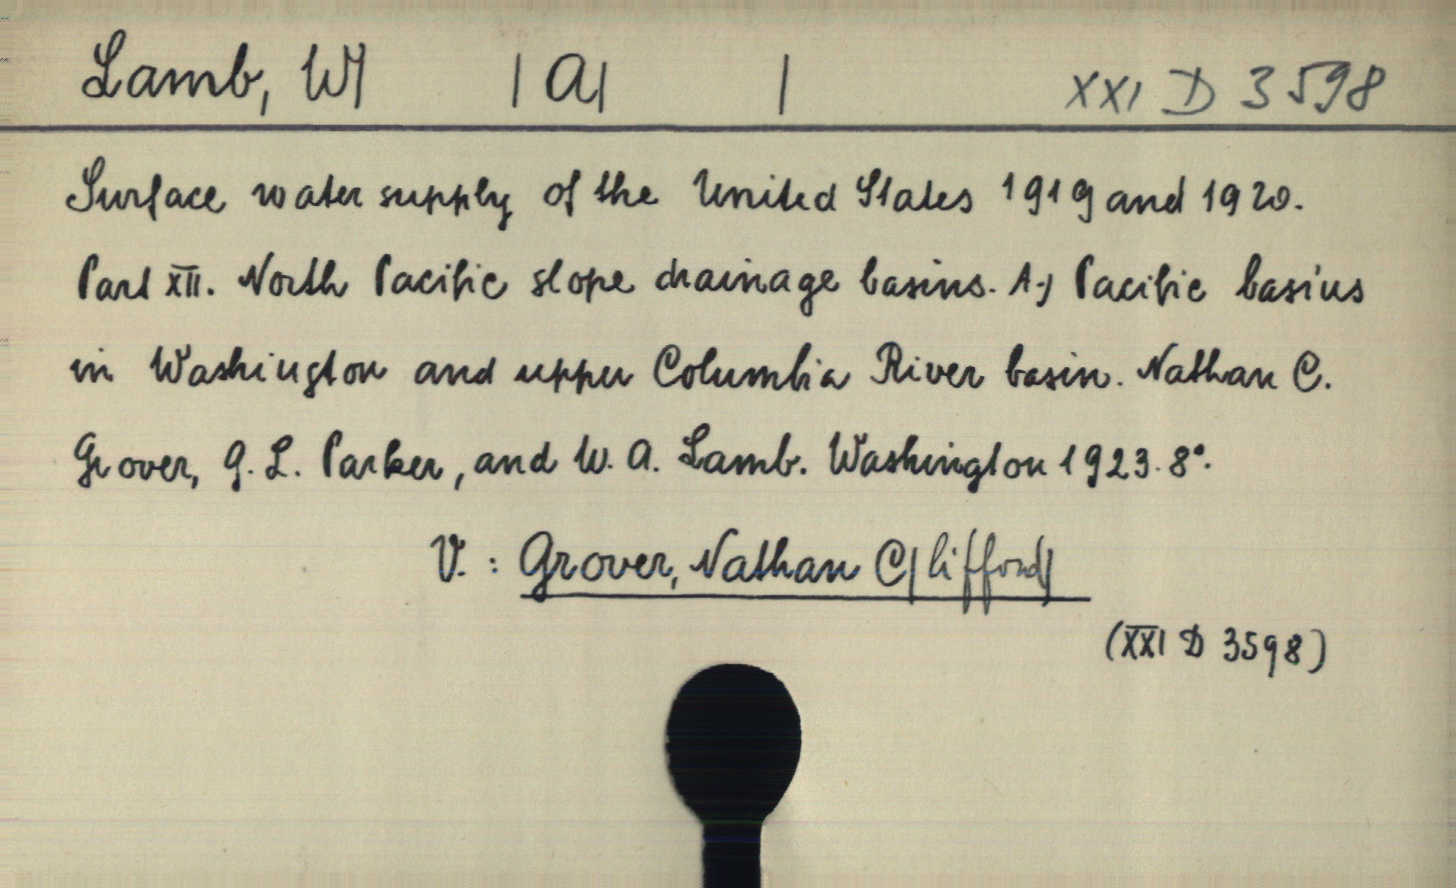 Lamb, W| |A| | XXI D 3598
Surface water supply of the United States 1919 and 1920.
Part XII. North Pacific slope drainage basins. A.) Pacific basins
in Washington and upper Columbia River basin. Nathan C.
Grover, G. L. Parker, and W. A. Lamb. Washington 1923. 8°.
V. : Grover, Nathan C|lifford|
(XXI D 3598)